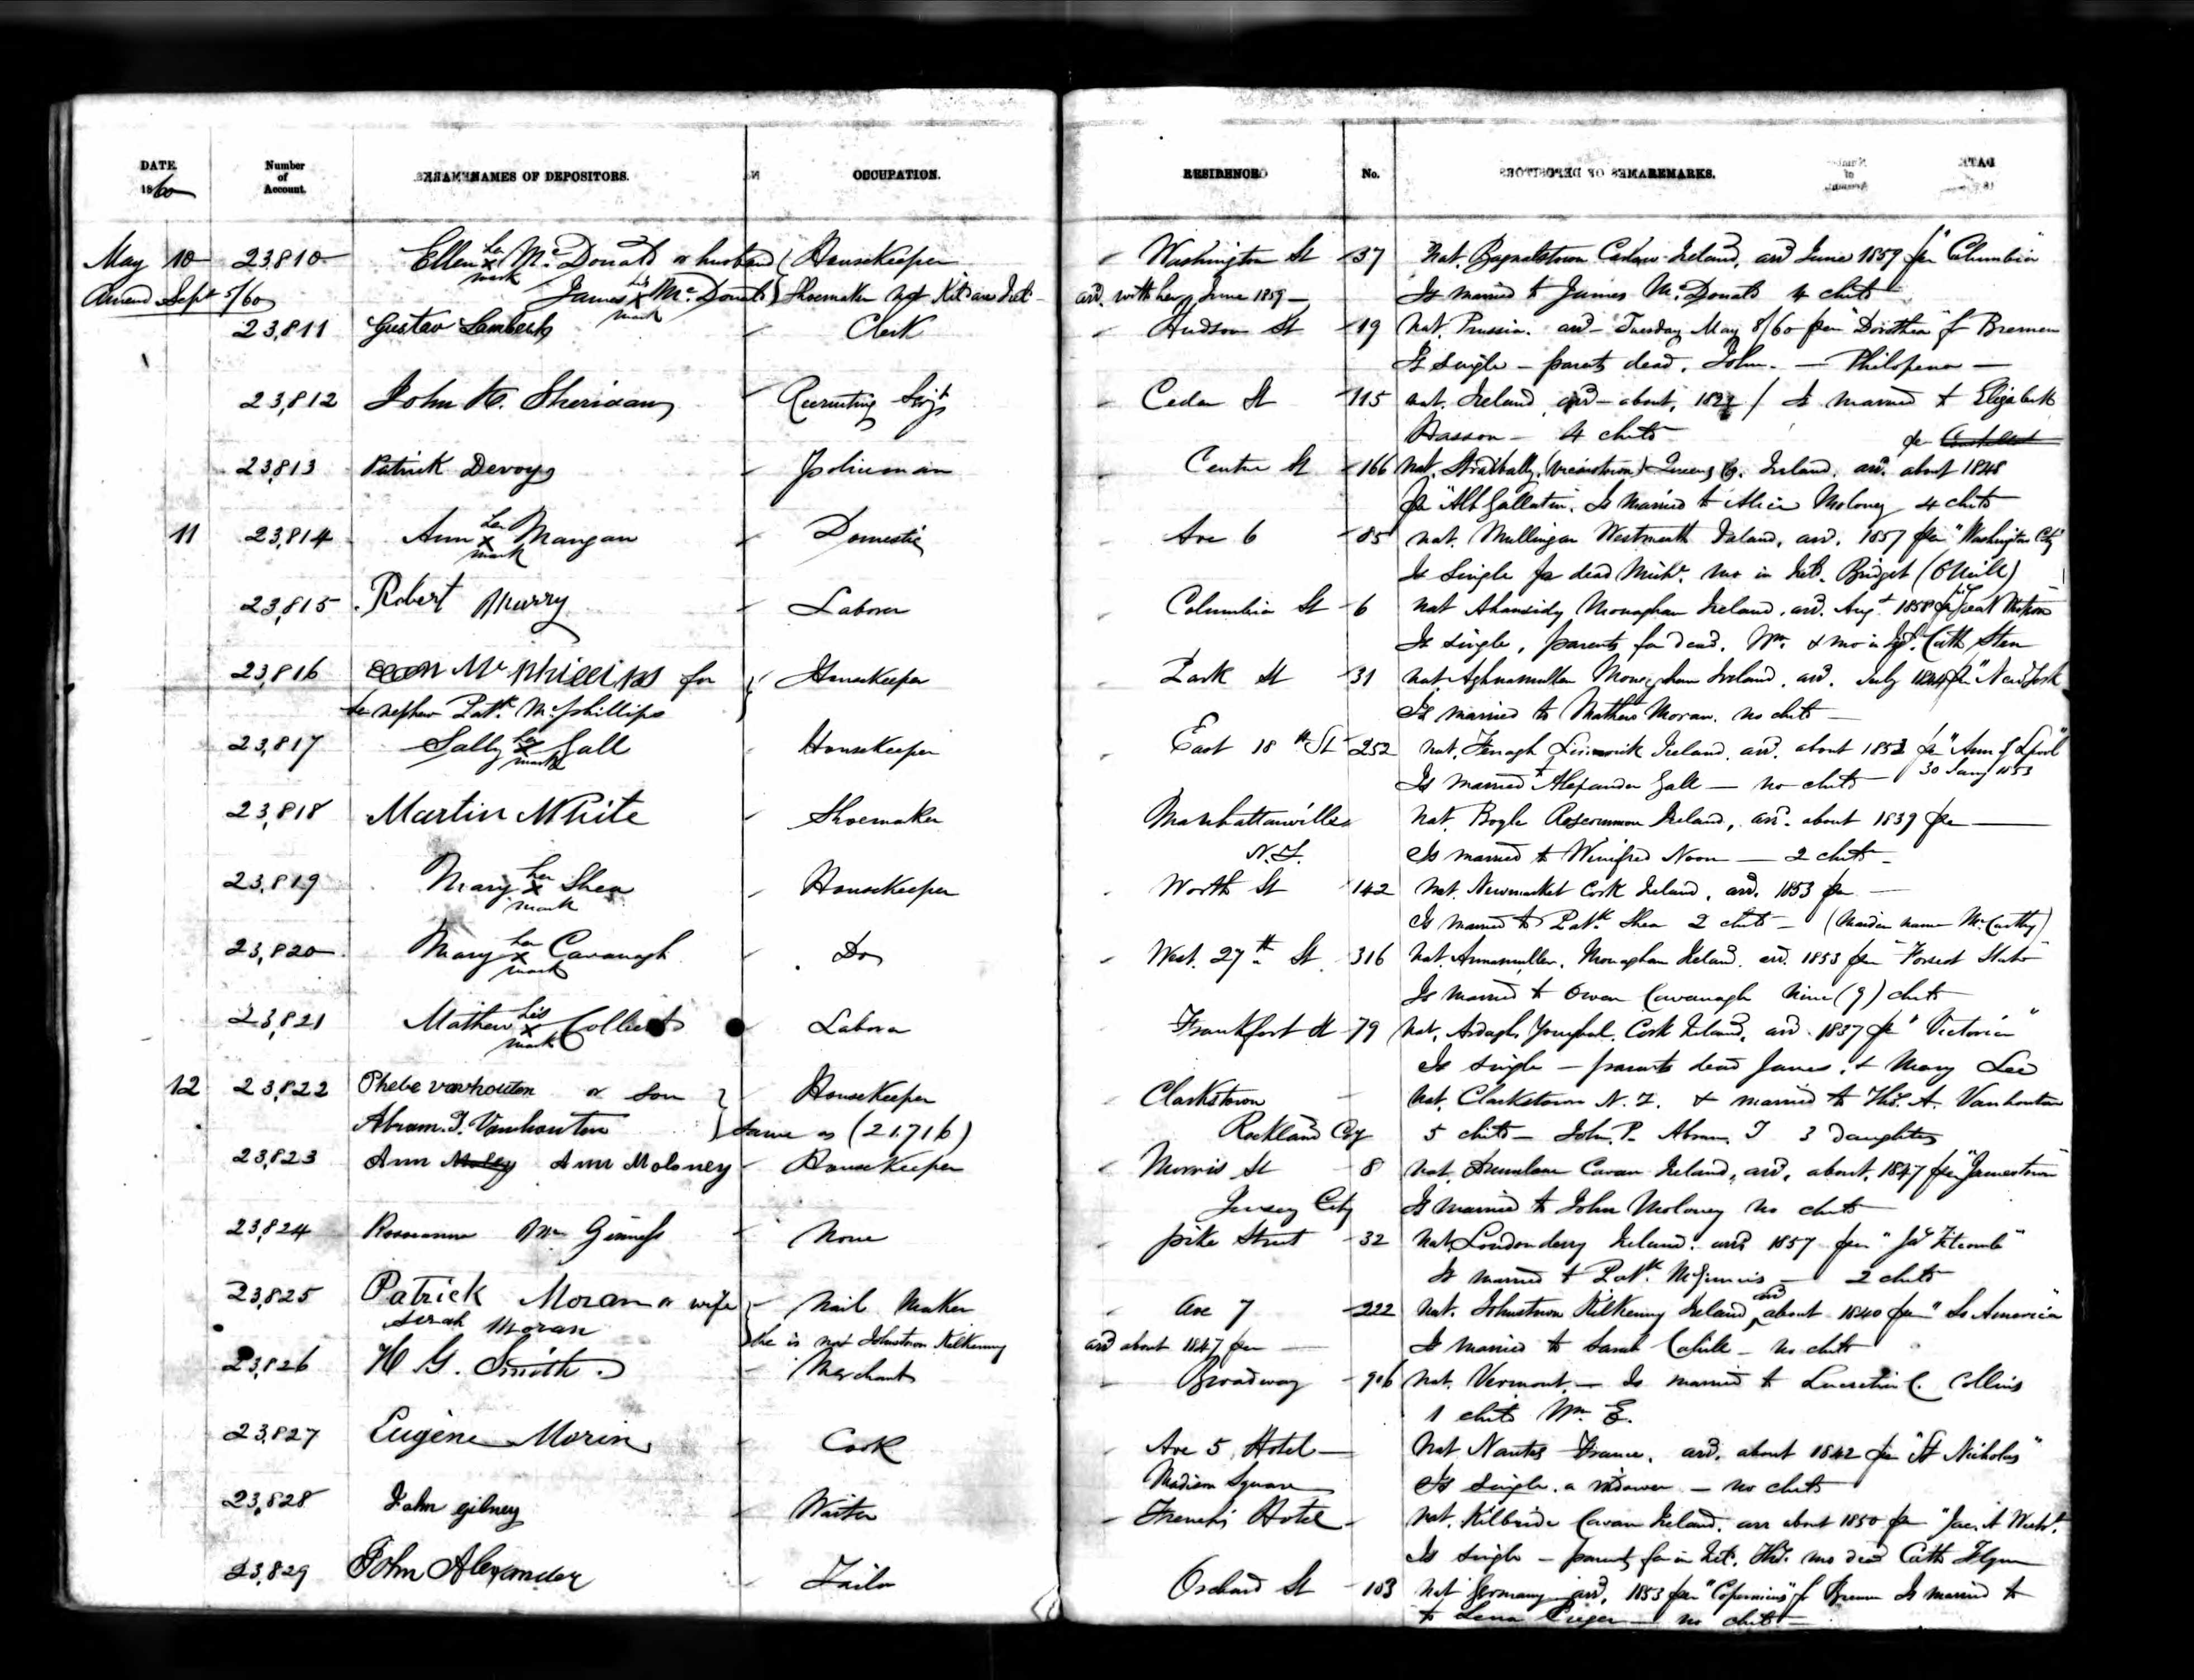 DATE. 1860 Number of Account. NAMES OF DEPOSITORS. OCCUPATION. RESIDENCE No. REMARKS.
May 10 23,810 Ellen her x mark McDonald or husband Housekeeper Washington St 37 Nat. Bagnalstown Carlow Ireland, arrd June 1859 per "Columbia"
Amend Sept 5/60 James his x mark McDonald Shoemaker nat Kildare Ireld arrd. with her June 1859 Is married to James McDonald 4 childn
23,811 Gustav Clerk Hudson St 19 Nat. Prussia. arrd Tuesday May 8/60 per "Dorothea" f Bremen
Is single – parents dead, John. – Philopena –
23,812 John H. Sheridan Recruiting Sergt Cedar St 115 nat. Ireland arrd about, / Is married to Elizabeth
Hasson – 4 childn per
23,813 Patrick Devoy Policeman Centre St 166 nat. Stradbally (Vicarstown) Queens Co. Ireland. arrd. about 1848
per "Alb Gallatin". Is married to Alice Moloney 4 childn
11 23,814 Ann her x mark Mangan Domestic Ave 6 85 nat. Mullingar Westmeath Ireland, arrd. 1857 per "Washington City"
Is Single fa dead Michl. mo in Ireld. Bridget (O'Neill)
23,815 Robert Murry Laborer Columbia St 6 nat Monaghan Ireland, arrd. Augt 1858 per "Great Western"
Is single, parents fa dead. Wm. & mo in Cath
23,816 Mc Phillips for Housekeeper Park St 31 nat. Aghnamullen Monaghan Ireland, arrd. July per "New York"
her nephew Patk. McPhillips Is married to Mathew Moran. no childn –
23,817 Sally her x mark Gall Housekeeper East 18th St 252 nat. Fenagh Ireland. arrd. about 1852 per
Is married to Alexander Gall – no childn 30 Jany 1853
23,818 Martin White Shoemaker Manhattanville Nat. Boyle Roscommon Ireland, arrd. about 1839 per –
N.Y. Is married to Winifred Noon – 2 childn –
23,819 Mary her x mark Shea Housekeeper Worth St 142 Nat. Newmarket Cork Ireland, arrd. 1853 per –
Is married to Patk. Shea 2 childn – (Maiden name McCarthy)
23,820 Mary her x mark Cavanagh Do West. 27th St 316 Nat. Monaghan Ireland. arrd. 1853 per "Forest State"
Is married to Owen Cavanagh Nine (9) childn
23,821 Mathew his x mark Laborer Frankfort St 79 Nat. Ardagh, Youghal, Cork Ireland, arrd. 1837 per "Victoria"
Is single – parents dead James, & Mary Lee
12 23,822 Phebe vanhouten or son Housekeeper Clarkstown Nat. Clarkstown N.Y. & married to Thos. A. Vanhouten
Abram. T. Vanhouten Same as (21.716) Rockland Coy 5 childn – John, P. Abram. T 3 Daughters
23,823 Ann Molly Ann Moloney Housekeeper Morris St 8 nat. Cavan Ireland, arrd. about, 1847 per "Jamestown"
Jersey City Is married to John Moloney no childn
23,824 Roseanna Mc Ginness None pike Street 32 Nat. Londonderry Ireland. arrd 1857 per
Is married to Patk. McGinnis – 2 childn
23,825 Patrick Moran or wife Nail Maker Ave 7 222 Nat. Johnstown Kilkenny Ireland, arrd about 1840 per "So America"
Sarah Moran She is nat Johnstown Kilkenny arrd about 1847 per – Is married to Sarah Cahill – no childn
23,826 H G. Smith Merchant Broadway 906 Nat. Vermont. – Is married to Lucretia C. Collins
1 child Wm. E.
23,827 Eugène Morin Cook Ave 5 Hotel – Nat Nantes France, arrd. about 1842 per "St Nicholas"
Madison Square Is single. a widower – no childn
23,828 John gibney Waiter French's Hotel Nat. Kilbride Cavan Ireland. arr about 1850 per
Is single – parents fa in Ireld. Thos. mo dead Cath Flynn
23,829 John Alexander Tailor Orchard St 103 Nat Germany arrd, 1853 per "Copernicus" f Bremen Is married to
to Lena – no childn –